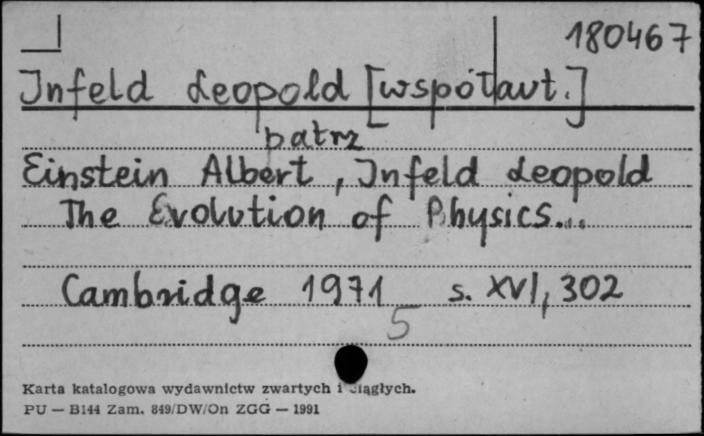 180467
Infeld Leopold [współaut.]
patrz
Einstein Albert, Infeld Leopold
The Evolution of Physics...
Cambridge 1971 s. XVI, 302
5
Karta katalogowa wydawnictw zwartych i ciągłych.
PU — B144 Zam. 849/DW/On ZGG — 1991